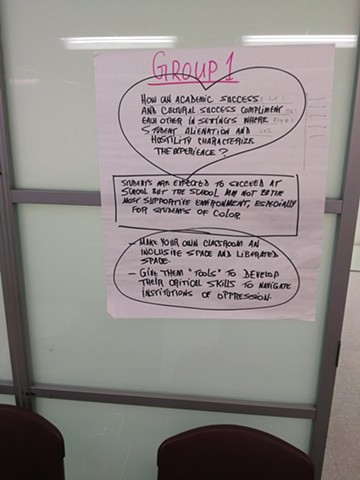 GROUP 1
HOW CAN ACADEMIC SUCCESS
AND CULTURAL SUCCESS COMPLIMENT
EACH OTHER IN SETTINGS WHERE
STUDENT ALIENATION AND
HOSTILITY CHARACTERIZE
THE EXPERIENCE?
STUDENTS ARE EXPECTED TO SUCCEED AT
SCHOOL BUT THE SCHOOL MAY NOT BE THE
MOST SUPPORTIVE ENVIRONMENT, ESPECIALLY
FOR STUDENTS OF COLOR
- MAKE YOUR OWN CLASSROOM AN
INCLUSIVE SPACE AND LIBERATED
SPACE.
- GIVE THEM "TOOLS" TO DEVELOP
THEIR CRITICAL SKILLS TO NAVIGATE
INSTITUTIONS OF OPPRESSION.